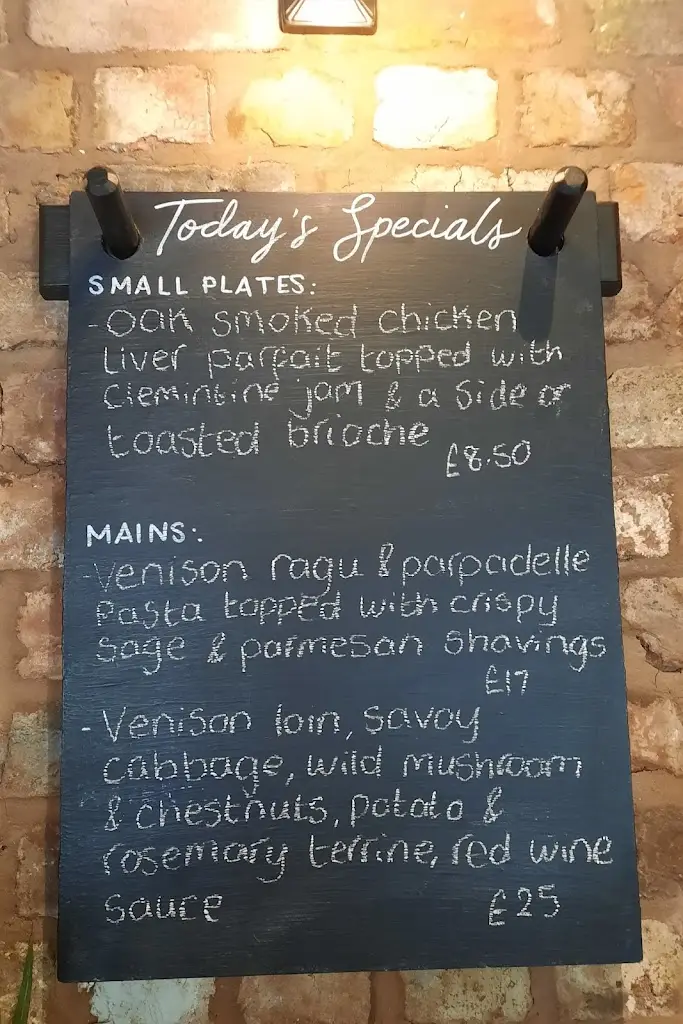 Today's Specials
SMALL PLATES:
-Oak smoked chicken
Liver parfait topped with
Clemintine jam & a side of
toasted brioche
£8.50
MAINS:
-Venison ragu & parpadelle
Pasta topped with crispy
sage & parmesan shavings
£17
-Venison loin, savoy
cabbage, wild mushroom
& chestnuts, potato &
rosemary terrine, red wine
sauce £25